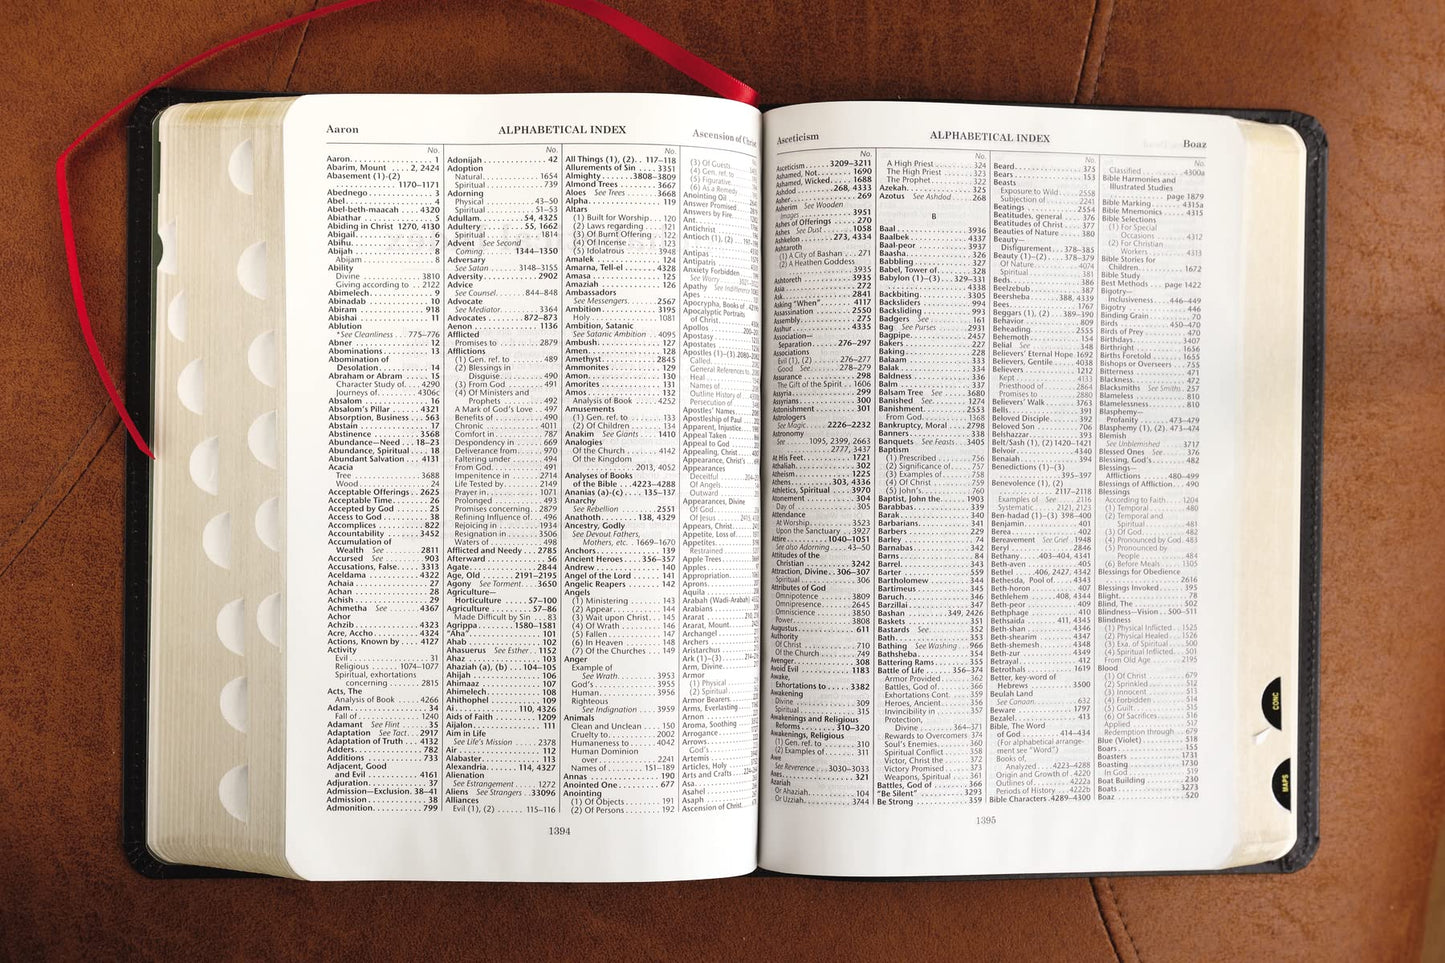 Aaron
ALPHABETICAL INDEX
Ascension of Christ
No.
Aaron. . . . . . . . . . . . . . . . 1
Abarim, Mount . . . . 2, 2424
Abasement (1)-(2)
. . . . . . . . . . . 1170-1171
Abednego . . . . . . . . . . . . . 3
Abel . . . . . . . . . . . . . . . . . 4
Abel-beth-maacah . . . . 4320
Abiathar . . . . . . . . . . . . . . 5
Abiding in Christ 1270, 4130
Abigail. . . . . . . . . . . . . . . . 6
Abihu. . . . . . . . . . . . . . . . . 7
Abijah . . . . . . . . . . . . . . . . 8
Abijam . . . . . . . . . . . . . . 8
Ability
Divine . . . . . . . . . . . . 3810
Giving according to . . 2122
Abimelech. . . . . . . . . . . . . 9
Abinadab . . . . . . . . . . . . . 10
Abiram . . . . . . . . . . . . . . 918
Abishai . . . . . . . . . . . . . . 11
Ablution
*See Cleanliness . . . 775-776
Abner . . . . . . . . . . . . . . . 12
Abominations. . . . . . . . . . 13
Abomination of
Desolation. . . . . . . . . . . 14
Abraham or Abram . . . . . 15
Character Study of. . . 4290
Journeys of. . . . . . . 4306c
Absalom . . . . . . . . . . . . . 16
Absalom's Pillar . . . . . 4321
Absorption, Business . . . 563
Abstain . . . . . . . . . . . . . . 17
Abstinence . . . . . . . . . 3568
Abundance—Need . . . 18-23
Abundance, Spiritual . . . . 18
Abundant Salvation . . . 4131
Acacia
Tree . . . . . . . . . . . . . 3688
Wood . . . . . . . . . . . . . 24
Acceptable Offerings . . 2625
Acceptable Time . . . . . . . 26
Accepted by God . . . . . . . 25
Access to God . . . . . . . . . 38
Accomplices . . . . . . . . . 822
Accountability . . . . . . . 3452
Accumulation of
Wealth See . . . . . . . 2811
Accursed See . . . . . . . . 903
Accusations, False. . . . . 3313
Aceldama . . . . . . . . . . 4322
Achaia . . . . . . . . . . . . . . 27
Achan . . . . . . . . . . . . . . 28
Achish . . . . . . . . . . . . . . 29
Achmetha See . . . . . . . 4367
Achor
Achzib . . . . . . . . . . . . 4323
Acre, Accho . . . . . . . . 4324
Actions, Known by . . . . 4127
Activity
Evil . . . . . . . . . . . . . . 31
Religious . . . . . . 1074-1077
Spiritual, exhortations
concerning . . . . . . . 2815
Acts, The
Analysis of Book . . . . 4266
Adam. . . . . . . . . . . . . . . 34
Fall of . . . . . . . . . . . 1240
Adamant See Flint . . . . . . 35
Adaptation See Tact. . . . 2917
Adaptation of Truth . . . 4132
Adders. . . . . . . . . . . . . 782
Additions . . . . . . . . . . . 733
Adjacent, Good
and Evil . . . . . . . . . 4161
Adjuration. . . . . . . . . . . . 37
Admission—Exclusion. 38-41
Admission . . . . . . . . . . . 38
Admonition. . . . . . . . . . 799
Adonijah . . . . . . . . . . . . 42
Adoption
Natural. . . . . . . . . . . 1654
Spiritual . . . . . . . . . . 739
Adorning
Physical . . . . . . . . . 43-50
Spiritual . . . . . . . . . 51-53
Adullam. . . . . . . . . 54, 4325
Adultery . . . . . . . . 55, 1662
Spiritual . . . . . . . . . 1814
Advent See Second
Coming. . . . . . . 1344-1350
Adversary
See Satan . . . . . 3148-3155
Adversity. . . . . . . . . . 2902
Advice
See Counsel. . . . . 844-848
Advocate
See Mediator. . . . . . . 3364
Advocates . . . . . . . 872-873
Aenon . . . . . . . . . . . . 1136
Afflicted
Promises to . . . . . . . 2879
Afflictions
(1) Gen. ref. to. . . . . . 489
(2) Blessings in
Disguise. . . . . . . . . 490
(3) From God . . . . . . 491
(4) Of Ministers and
Prophets . . . . . . . . 492
A Mark of God's Love . . 497
Benefits of . . . . . . . . 490
Chronic . . . . . . . . . 4011
Comfort in . . . . . . . . 787
Despondency in . . . . . 669
Deliverance from. . . . . 970
Faltering under . . . . . 494
From God. . . . . . . . . 491
Impenitence in . . . . . 2714
Life Tested by . . . . . . 2149
Prayer in. . . . . . . . . 1071
Prolonged . . . . . . . . 493
Promises concerning. . 2879
Refining Influence of. . . 496
Rejoicing in . . . . . . . 1934
Resignation in . . . . . 3506
Waters of . . . . . . . . . 498
Afflicted and Needy . . . 2785
Afterward . . . . . . . . . . . 56
Agate. . . . . . . . . . . . . 2844
Age, Old . . . . . . 2191-2195
Agony See Torment. . . . 3650
Agriculture—
Horticulture . . . . . 57-100
Agriculture . . . . . . . . 57-86
Made Difficult by Sin . . . 83
Agrippa . . . . . . . 1580-1581
"Aha". . . . . . . . . . . . . . 101
Ahab . . . . . . . . . . . . . . 102
Ahasuerus See Esther . . 1152
Ahaz . . . . . . . . . . . . . . 103
Ahaziah (a), (b) . . . 104-105
Ahijah . . . . . . . . . . . . . 106
Ahimaaz . . . . . . . . . . . 107
Ahimelech. . . . . . . . . . 108
Ahithophel . . . . . . . . . 109
Ai. . . . . . . . . . . . 110, 4326
Aids of Faith . . . . . . . . 1209
Aijalon. . . . . . . . . . . . . 111
Aim in Life
See Life's Mission . . . . 2378
Air . . . . . . . . . . . . . . . 112
Alabaster. . . . . . . . . . . 113
Alexandria. . . . . . 114, 4327
Alienation
See Estrangement . . . . 1272
Aliens See Strangers . . 33096
Alliances
Evil (1), (2) . . . . . 115-116
All Things (1), (2). . 117-118
Allurements of Sin . . . . 3351
Almighty. . . . . . 3808-3809
Almond Trees . . . . . . . 3667
Aloes See Trees. . . . . . 3668
Alpha. . . . . . . . . . . . . . 119
Altars
(1) Built for Worship. . . 120
(2) Laws regarding . . . 121
(3) Of Burnt Offering . . 122
(4) Of Incense . . . . . . 123
(5) Idolatrous . . . . . . 3948
Amalek . . . . . . . . . . . . 124
Amarna, Tell-el . . . . . . 4328
Amasa . . . . . . . . . . . . 125
Amaziah . . . . . . . . . . . 126
Ambassadors
See Messengers. . . . . 2567
Ambition. . . . . . . . . . . 3195
Holy . . . . . . . . . . . 1081
Ambition, Satanic
See Satanic Ambition . . 4095
Ambush. . . . . . . . . . . . 127
Amen. . . . . . . . . . . . . . 128
Amethyst. . . . . . . . . . 2845
Ammonites . . . . . . . . . 129
Amon . . . . . . . . . . . . . 130
Amorites . . . . . . . . . . . 131
Amos . . . . . . . . . . . . . 132
Analysis of Book . . . . 4252
Amusements
(1) Gen. ref. to. . . . . . 133
(2) Of Children . . . . . 134
Anakim See Giants . . . 1410
Analogies
Of the Church . . . . . 4142
Of the Kingdom
. . . . . . . . . . 2013, 4052
Analyses of Books
of the Bible . . . 4223-4288
Ananias (a)-(c) . . . 135-137
Anarchy
See Rebellion . . . . . . 2551
Anathoth. . . . . . 138, 4329
Ancestry, Godly
See Devout Fathers,
Mothers, etc. . 1669-1670
Anchors. . . . . . . . . . . . 139
Ancient Heroes . . . 356-357
Andrew . . . . . . . . . . . . 140
Angel of the Lord . . . . . 141
Angelic Reapers . . . . . . 142
Angels
(1) Ministering . . . . . 143
(2) Appear . . . . . . . . 144
(3) Wait upon Christ. . . 145
(4) Of Wrath . . . . . . . 146
(5) Fallen . . . . . . . . . 147
(6) In Heaven . . . . . . 148
(7) Of the Churches . . . 149
Anger
Example of
See Wrath. . . . . . . 3953
God's . . . . . . . . . . . 3955
Human. . . . . . . . . . 3956
Righteous
See Indignation . . . . 3959
Animals
Clean and Unclean . . . 150
Cruelty to. . . . . . . . 2002
Humaneness to . . . . 4042
Human Dominion
over. . . . . . . . . . . 2241
Names of . . . . . 151-189
Annas . . . . . . . . . . . . . 190
Anointed One . . . . . . . 677
Anointing
(1) Of Objects . . . . . . 191
(2) Of Persons . . . . . . 192
(3) Of Guests
(4) Gen. ref. to
(5) Figurative
(6) As a Remedy
Anointing Oil
Answer Promised
Answers by Fire
Ant
Antichrist
Antioch (1), (2)
Antipas
Antipatris
Anxiety Forbidden
See Worry
Apathy See Indifference
Apes
Apocrypha, Books of
Apocalyptic Portraits
of Christ
Apollos
Apostasy
Apostates
Apostles (1)-(3)
Called
General References
Heal
Names of
Outline History of
Persecution of
Apostles' Names
Apostleship of Paul
Apparent, Injustice
Appeal Taken
Appeal to God
Appealing, Christ
Appearance, Christ's
Appearances
Deceitful
Of Angels
Outward
Appearances, Divine
Of God
Of Jesus
Appears, Christ
Appetite, Loss of
Appetites
Restrained
Apple Trees
Apples
Appropriation
Aprons
Aquila
Arabah (Wadi-Arabah)
Arabians
Ararat
Ararat, Mount
Archangel
Archers
Aristarchus
Ark (1)-(3)
Arm, Divine
Armor
(1) Physical
(2) Spiritual
Armor Bearers
Arms, Everlasting
Arnon
Aroma, Soothing
Arrogance
Arrows
God's
Artemis
Articles, Holy
Arts and Crafts
Asa
Asahel
Asaph
Ascension of Christ
1394
Asceticism
ALPHABETICAL INDEX
Boaz
No.
Asceticism . . . . 3209-3211
Ashamed, Not. . . . . . 1690
Ashamed, Wicked. . . . 1688
Ashdod . . . . . . 268, 4333
Asher. . . . . . . . . . . . 269
Asherim See Wooden
Images . . . . . . . . . 3951
Ashes of Offerings . . . . 270
Ashes See Dust . . . . . 1058
Ashkelon . . . . . 273, 4334
Ashtaroth
(1) A City of Bashan . . . 271
(2) A Heathen Goddess
. . . . . . . . . . . . . 3935
Ashtoreth . . . . . . . . 3935
Asia . . . . . . . . . . . . . 272
Ask . . . . . . . . . . . . 2841
Asking "When". . . . . 4117
Assassination . . . . . . 2550
Assembly. . . . . . . . . . 275
Asshur . . . . . . . . . . 4335
Association—
Separation. . . . . 276-297
Associations
Evil (1), (2) . . . . . 276-277
Good See . . . . . 278-279
Assurance . . . . . . . . . 298
The Gift of the Spirit . . 1606
Assyria . . . . . . . . . . . 299
Assyrians. . . . . . . . . . 300
Astonishment . . . . . . . 301
Astrologers
See Magic . . . 2226-2232
Astronomy
See . . . . 1095, 2399, 2663
. . . . . . . . . 2777, 3437
At His Feet. . . . . . . . 1721
Athaliah . . . . . . . . . . 302
Atheism . . . . . . . . . 1225
Athens . . . . . . 303, 4336
Athletics, Spiritual . . . 3970
Atonement . . . . . . . . 304
Day of . . . . . . . . . . 305
Attendance
At Worship. . . . . . . 3523
Upon the Sanctuary . . 3927
Attire . . . . . . 1040-1051
See also Adorning . . 43-50
Attitudes of the
Christian . . . . . . . 3242
Attraction, Divine. . 306-307
Spiritual . . . . . . . . . 306
Attributes of God
Omnipotence . . . . . 3809
Omnipresence. . . . . 2645
Omniscience . . . . . 3850
Power. . . . . . . . . . 3808
Augustus . . . . . . . . . 611
Authority
Of Christ . . . . . . . . 710
Of the Church . . . . . 749
Avenger . . . . . . . . . . 308
Avoid Evil . . . . . . . . 1183
Awake,
Exhortations to . . . . 3382
Awakening
Divine . . . . . . . . . . 309
Spiritual . . . . . . . . . 315
Awakenings and Religious
Reforms . . . . . . 310-320
Awakenings, Religious
(1) Gen. ref. to . . . . . 310
(2) Examples of . . . . . 311
Awe
See Reverence . . 3030-3033
Axes . . . . . . . . . . . . 321
Azariah
Or Ahaziah. . . . . . . . 104
Or Uzziah. . . . . . . . 3744
A High Priest . . . . . . . 324
The High Priest . . . . . 323
The Prophet . . . . . . . 322
Azekah. . . . . . . . . . . . 325
Azotus See Ashdod . . . . 268
B
Baal . . . . . . . . . . . . 3936
Baalbek . . . . . . . . . . 4337
Baal-peor. . . . . . . . . 3937
Baasha. . . . . . . . . . . . 326
Babbling . . . . . . . . . . 327
Babel, Tower of. . . . . . 328
Babylon (1)-(3) . . . 329-331
. . . . . . . . . . . . . . 4338
Backbiting. . . . . . . . . 3305
Backsliders . . . . . . . . 994
Backsliding . . . . . . . . 993
Badgers See . . . . . . . . 161
Bag See Purses. . . . . . 2931
Bagpipe. . . . . . . . . . 2457
Bakers . . . . . . . . . . . 227
Baking. . . . . . . . . . . . 228
Balaam . . . . . . . . . . . 333
Balak . . . . . . . . . . . . 334
Baldness. . . . . . . . . . . 336
Balm . . . . . . . . . . . . . 337
Balsam Tree See . . . . . 3680
Banished See . . . . . . . 1274
Banishment. . . . . . . . 2553
From God. . . . . . . . 1368
Bankruptcy, Moral . . . . 2798
Banners . . . . . . . . . . . 338
Banquets See Feasts. . . 3405
Baptism
(1) Prescribed . . . . . . 756
(2) Significance of . . . . 757
(3) Examples of . . . . . 758
(4) Of Christ . . . . . . . 759
(5) John's. . . . . . . . . 760
Baptist, John the. . . . . 1903
Barabbas . . . . . . . . . . 339
Barak . . . . . . . . . . . . 340
Barbarians. . . . . . . . . . 341
Barbers . . . . . . . . . . . 229
Barley . . . . . . . . . . . . . 74
Barnabas . . . . . . . . . . 342
Barns . . . . . . . . . . . . . 84
Barrel. . . . . . . . . . . . . 343
Barter . . . . . . . . . . . . 559
Bartholomew . . . . . . . . 344
Bartimeus . . . . . . . . . . 345
Baruch . . . . . . . . . . . . 346
Barzillai . . . . . . . . . . . 347
Bashan . . . . . . . 349, 2426
Baskets . . . . . . . . . . . 351
Bastards See . . . . . . . . 352
Bath . . . . . . . . . . . . . 353
Bathing See Washing . . . 966
Bathsheba . . . . . . . . . 354
Battering Rams . . . . . . 355
Battle of Life. . . . . 356-374
Armor Provided . . . . . 362
Battles, God of. . . . . . 366
Exhortations Cont. . . . 359
Heroes, Ancient . . . . . 356
Invincibility in . . . . . . 357
Protection,
Divine . . . . . . . 364-371
Rewards to Overcomers 374
Soul's Enemies. . . . . . 360
Spiritual Conflict . . . . 358
Victor, Christ the . . . . 372
Victory Promised . . . . 373
Weapons, Spiritual . . . 361
Battles, God of . . . . . . 366
"Be Silent" . . . . . . . . 3293
Be Strong . . . . . . . . . 359
Beard . . . . . . . . . . . . 375
Bears . . . . . . . . . . . . 153
Beasts
Exposure to Wild. . . . 2558
Subjection of . . . . . . 2241
Beatings . . . . . . . . . . 2554
Beatitudes, general . . . . 376
Beatitudes of Christ . . . 377
Beauties of Nature . . . . 380
Beauty—
Disfigurement. . . 378-385
Beauty (1)-(2) . . . 378-379
Of Nature . . . . . . . 4074
Spiritual . . . . . . . . . 381
Beds. . . . . . . . . . . . . 386
Beelzebub . . . . . . . . . 387
Beersheba . . . . 388, 4339
Bees. . . . . . . . . . . . 1767
Beggars (1), (2) . . 389-390
Behavior. . . . . . . . . . . 809
Beheading. . . . . . . . . 2555
Behemoth . . . . . . . . . 154
Belial See . . . . . . . . . 348
Believers' Eternal Hope 1692
Believers, Gentile . . . . 4038
Believers . . . . . . . . . 1212
Kept . . . . . . . . . . . 4133
Priesthood of . . . . . 2864
Promises to . . . . . . 2880
Believers' Walk . . . . . 3763
Bells. . . . . . . . . . . . . 391
Beloved Disciple. . . . . . 392
Beloved Son . . . . . . . . 706
Belshazzar . . . . . . . . . 393
Belt/Sash (1), (2) 1420-1421
Belvoir. . . . . . . . . . . 4340
Benaiah . . . . . . . . . . 394
Benedictions (1)-(3)
. . . . . . . . . . . . 395-397
Benevolence (1), (2)
. . . . . . . . . 2117-2118
Examples of See . . . 2116
Systematic . . . 2121, 2123
Ben-hadad (1)-(3) 398-400
Benjamin. . . . . . . . . . 401
Berea . . . . . . . . . . . . 402
Bereavement See Grief. 1948
Beryl . . . . . . . . . . . . 2846
Bethany. . . . . 403-404, 4341
Beth-aven . . . . . . . . . 405
Bethel . . . 406, 2427, 4342
Bethesda, Pool of. . . . 4343
Beth-horon . . . . . . . . 407
Bethlehem . . . . 408, 4344
Beth-peor . . . . . . . . . 409
Bethphage . . . . . . . . . 410
Bethsaida . . . . 411, 4345
Beth-shan . . . . . . . . 4346
Beth-shearim . . . . . . 4347
Beth-shemesh . . . . . . 4348
Beth-zur . . . . . . . . . 4349
Betrayal. . . . . . . . . . . 412
Betrothals . . . . . . . . 1619
Better, key-word of
Hebrews . . . . . . . . 3500
Beulah Land
See Canaan. . . . . . . . 632
Beware . . . . . . . . . . 1797
Bezalel. . . . . . . . . . . . 413
Bible, The Word
of God . . . . . . . 414-434
(For alphabetical arrange-
ment see "Word")
Books of,
Analyzed. . . . 4223-4288
Origin and Growth of . 4220
Outlines of. . . . . . . 4222a
Periods of History . . . 4222b
Bible Characters . 4289-4300
Classified. . . . . . . . 4300a
Bible Harmonies and
Illustrated Studies
. . . . . . . . . . page 1879
Bible Marking . . . . . 4315a
Bible Mnemonics . . . . 4315
Bible Selections
(1) For Special
Occasions . . . . . . 4312
(2) For Christian
Workers. . . . . . . . 4313
Bible Stories for
Children. . . . . . . . 1672
Bible Study
Best Methods . . page 1422
Bigotry—
Inclusiveness. . . . 446-449
Bigotry . . . . . . . . . . . 446
Binding Grain . . . . . . . 70
Birds . . . . . . . . 450-470
Birds of Prey . . . . . . . 470
Birthdays. . . . . . . . . 3407
Birthright. . . . . . . . . 1656
Births Foretold . . . . . 1655
Bishops or Overseers . . . 755
Bitterness . . . . . . . . . 471
Blackness. . . . . . . . . . 472
Blacksmiths See Smiths . 257
Blamelessness . . . . . . . 810
Blasphemy—
Profanity . . . . . 473-479
Blasphemy (1), (2). 473-474
Blemish
See Unblemished . . . . 3717
Blessed Ones See. . . . . 376
Blessing, God's . . . . . . 482
Blessings—
Afflictions . . . . . 480-499
Blessings of Affliction. . . 490
Blessings
According to Faith. . . 1204
(1) Temporal . . . . . . 480
(2) Temporal and
Spiritual . . . . . . . . 481
(3) Of God. . . . . . . . 482
(4) Pronounced by God 483
(5) Pronounced by
People . . . . . . . . . 484
(6) Before Meals . . . 1305
Blessings for Obedience
. . . . . . . . . . . . . 2616
Blessings Invoked . . . . 395
Blight. . . . . . . . . . . . . 78
Blind, The . . . . . . . . . 502
Blindness—Vision . 500-511
Blindness
(1) Physical Inflicted . 1525
(2) Physical Healed . . 1526
(3) Exa. of Spiritual . . . 500
(4) Spiritual Inflicted. . 501
From Old Age . . . . . 2195
Blood
(1) Of Christ . . . . . . 679
(2) Sprinkled . . . . . . 512
(3) Innocent . . . . . . . 513
(4) Forbidden . . . . . . 514
(5) Guilt . . . . . . . . . 515
(6) Of Sacrifices . . . . . 516
Applied . . . . . . . . . 517
Redemption through . . 679
Blue (Violet) . . . . . . . 518
Boars . . . . . . . . . . . . 155
Boasters. . . . . . . . . . 1731
Boasting. . . . . . . . . . 1730
In God . . . . . . . . . . 519
Boat Building . . . . . . . 230
Boats . . . . . . . . . . . 3273
Boaz . . . . . . . . . . . . . 520
1395
CONC
MAPS